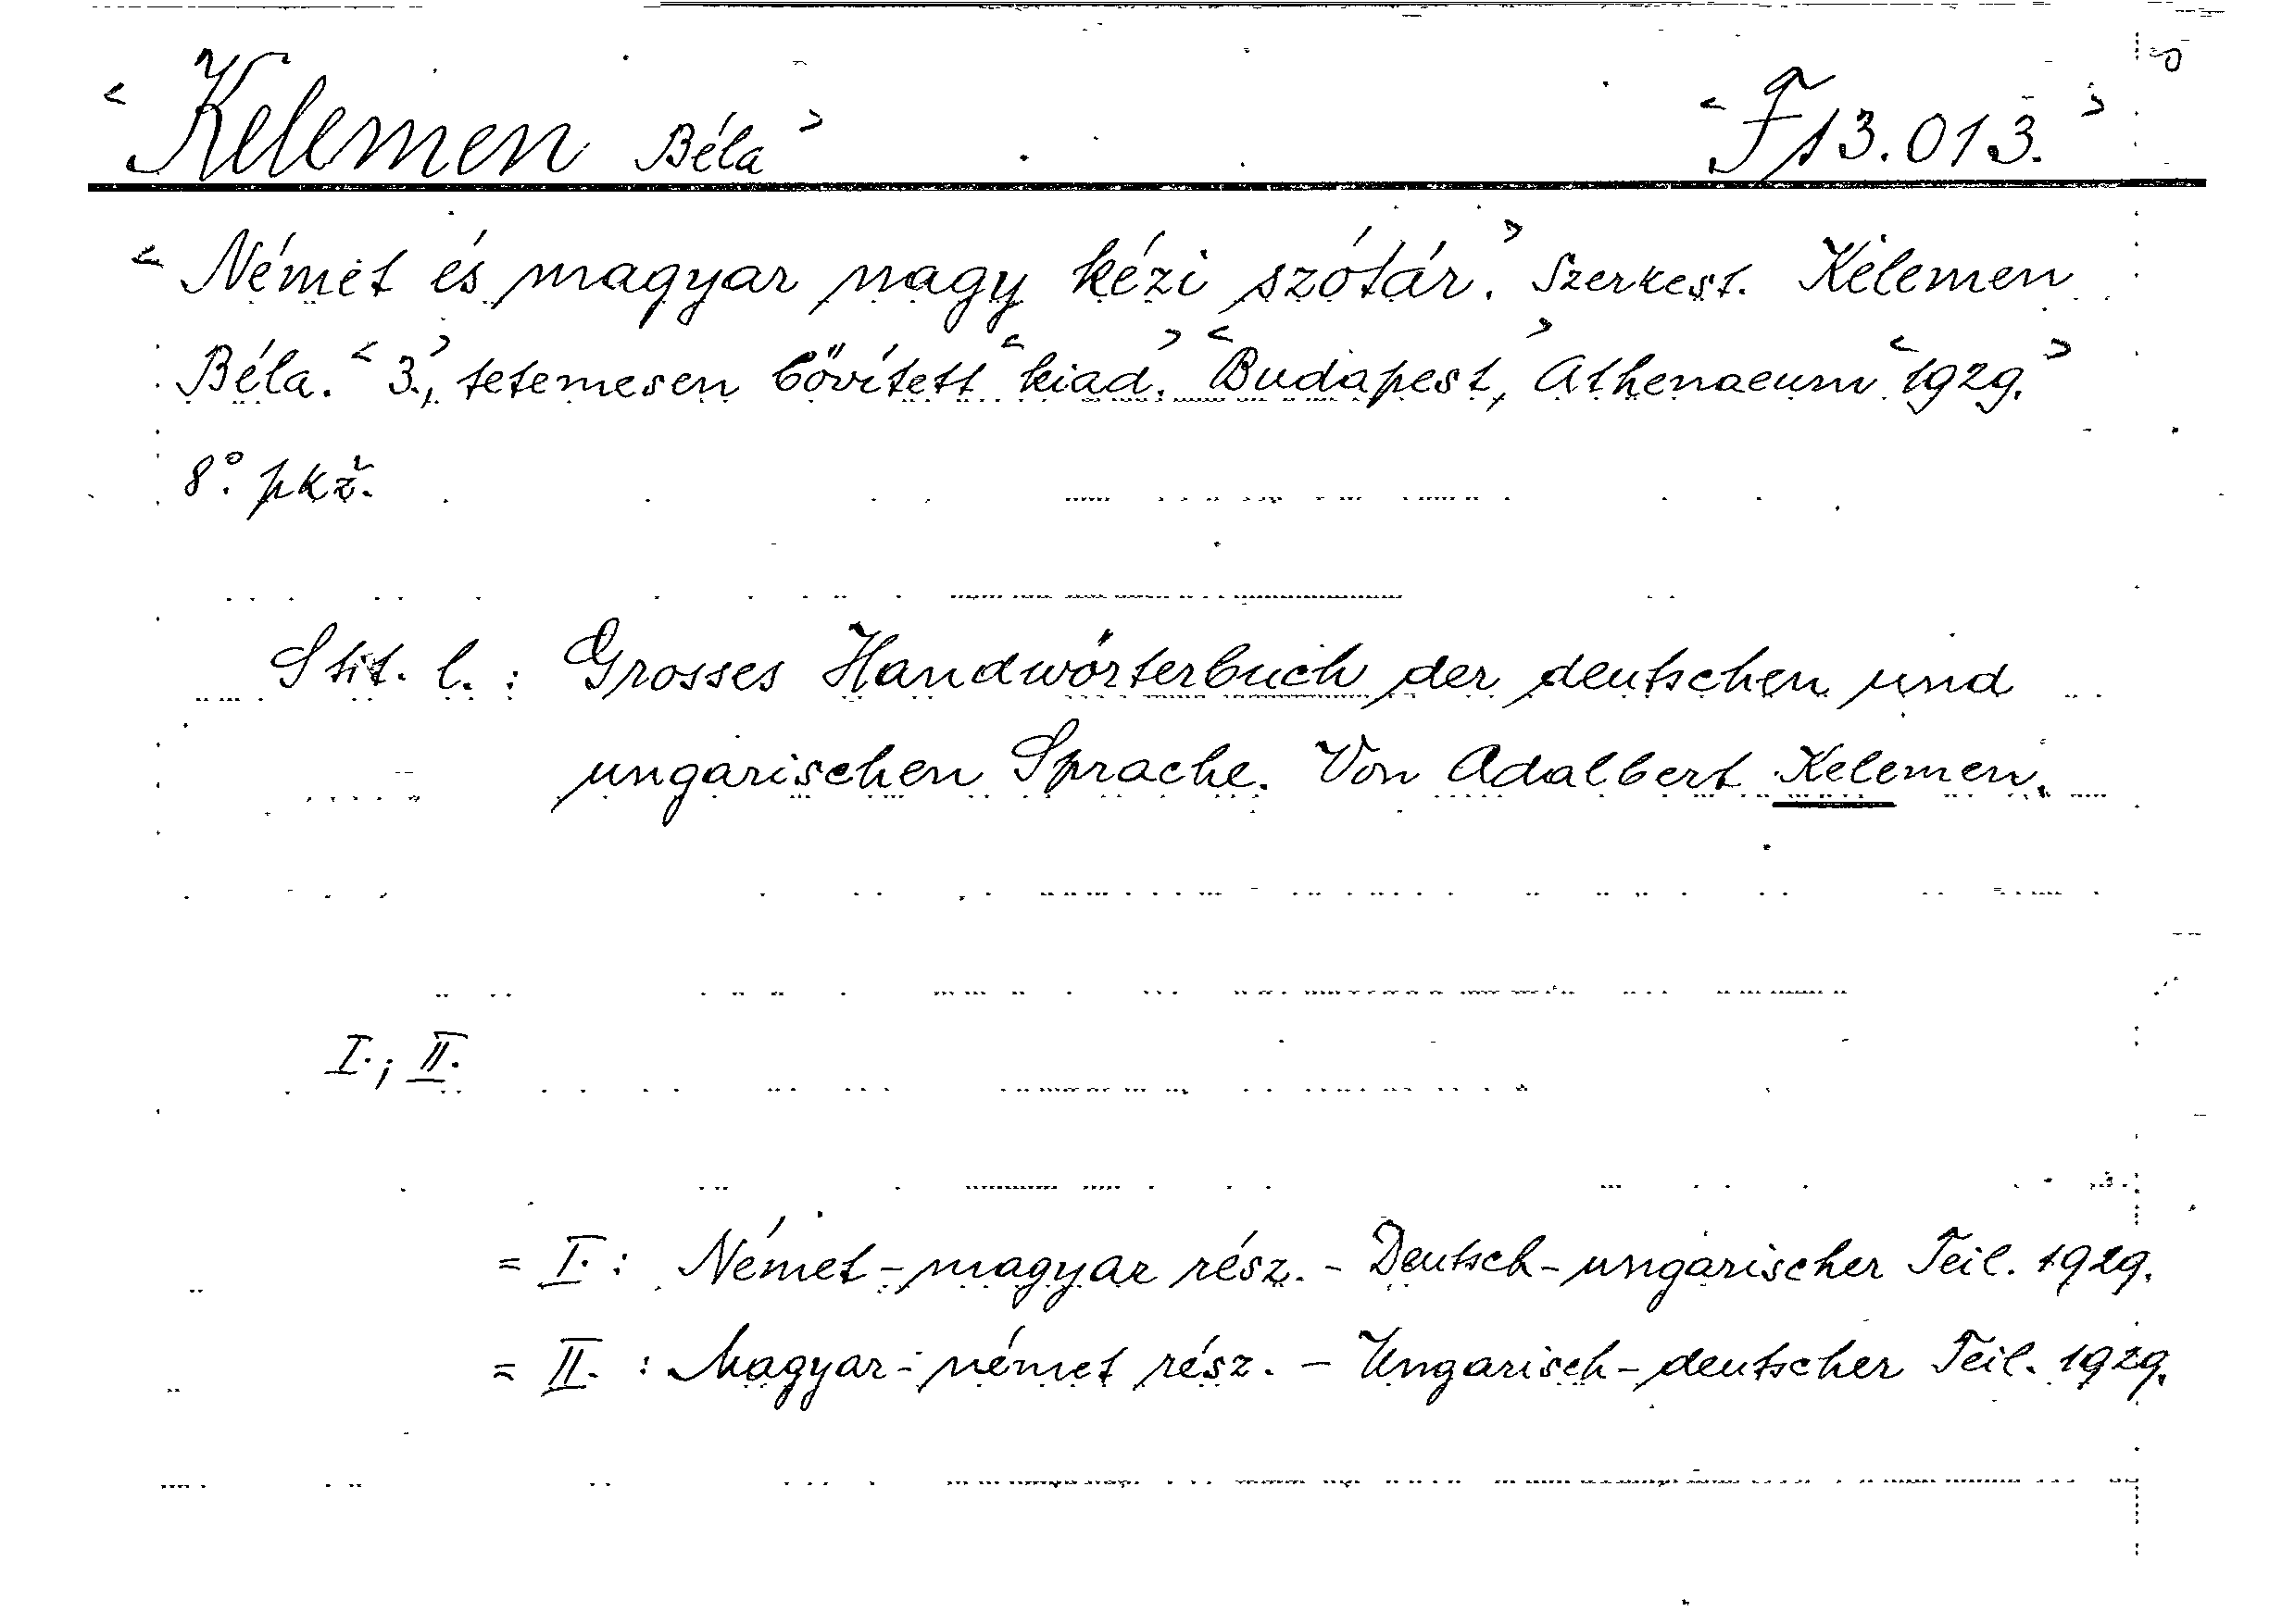 < Kelemen Béla > < F 13.013. >
< Német és magyar nagy kézi szótár. > Szerkest. Kelemen
Béla. < 3., > tetemesen bővített < kiad. > < Budapest, > Athenaeum < 1929. >
8°. pkž.
Stit. l. : Grosses Handwörterbuch der deutschen und
ungarischen Sprache. Von Adalbert Kelemen.
I. ; II.
= I. : Német-magyar rész. - Deutsch-ungarischer Teil. 1929.
= II. : Magyar-német rész. - Ungarisch-deutscher Teil. 1929.